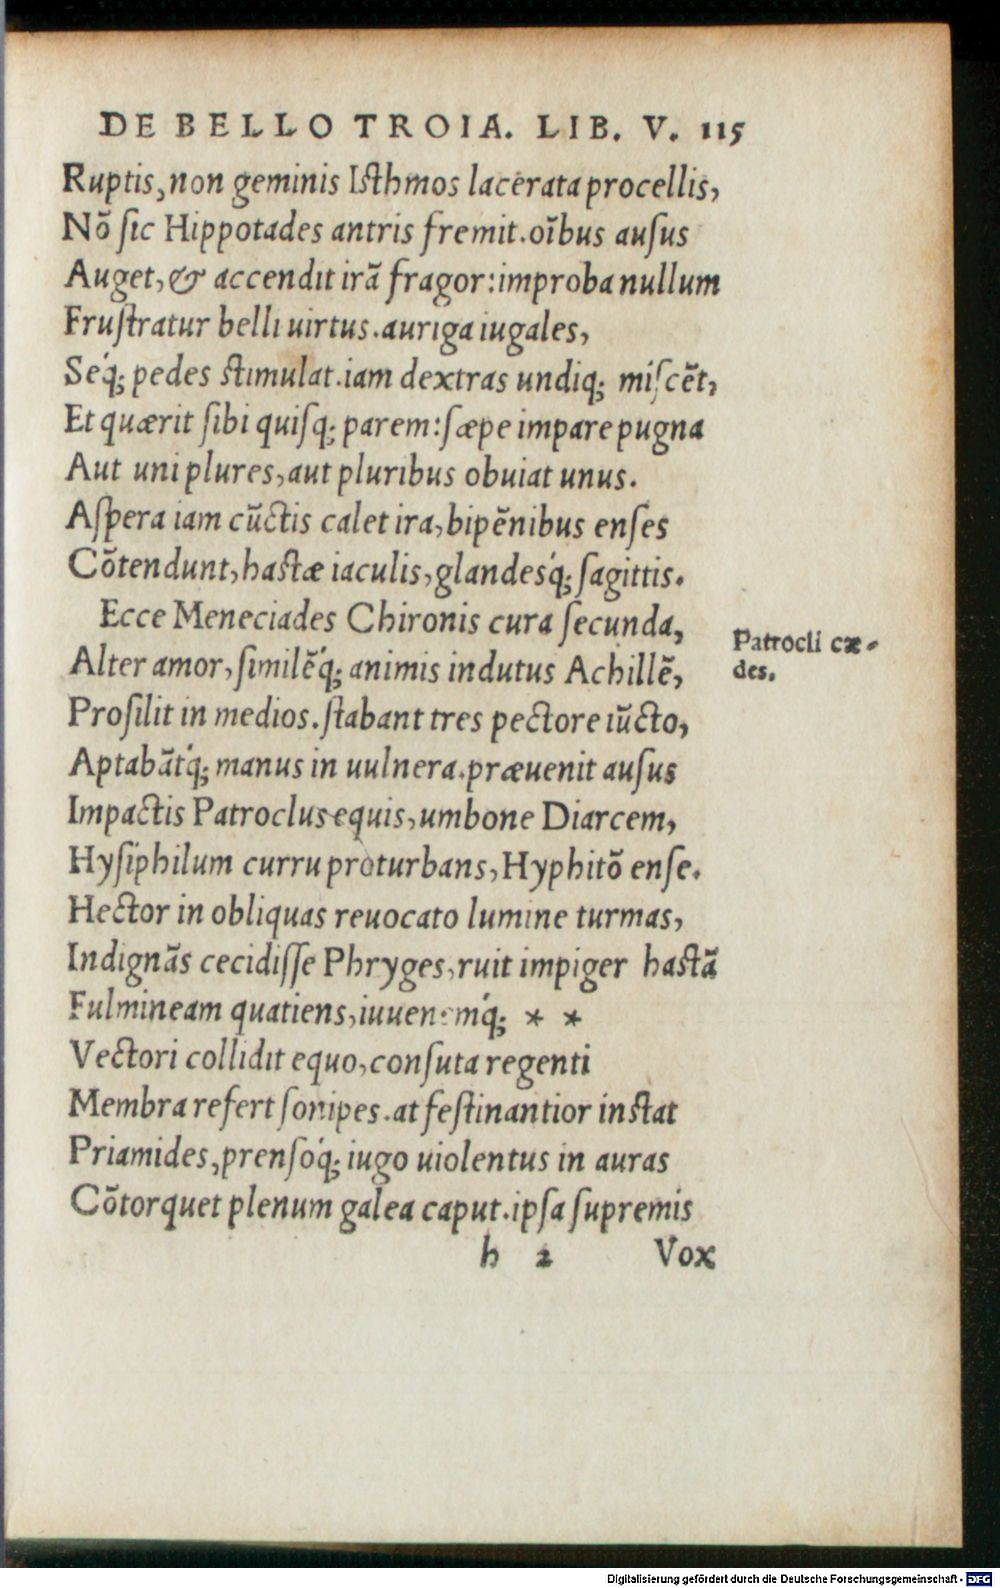 DE BELLO TROIA. LIB. V. 115
Ruptis, non geminis Isthmos lacerata procellis,
Nō sic Hippotades antris fremit. oībus ausus
Auget, & accendit irā fragor: improba nullum
Frustratur belli uirtus. auriga iugales,
Seq́; pedes stimulat. iam dextras undiq; miscēt,
Et quærit sibi quisq; parem: sæpe impare pugna
Aut uni plures, aut pluribus obuiat unus.
Aspera iam cūctis calet ira, bipēnibus enses
Cōtendunt, hastæ iaculis, glandesq́; sagittis.
Ecce Meneciades Chironis cura secunda,
Patrocli cæ-
des.
Alter amor, similēq́; animis indutus Achillē,
Prosilit in medios. stabant tres pectore iūcto,
Aptabātq́; manus in uulnera. præuenit ausus
Impactis Patroclus equis, umbone Diarcem,
Hysiphilum curru proturbans, Hyphitō ense.
Hector in obliquas reuocato lumine turmas,
Indignās cecidisse Phryges, ruit impiger hastā
Fulmineam quatiens, iuuenemq́; * *
Vectori collidit equo, consuta regenti
Membra refert sonipes. at festinantior instat
Priamides, prensoq́; iugo uiolentus in auras
Cōtorquet plenum galea caput. ipsa supremis
h 2 Vox
Digitalisierung gefördert durch die Deutsche Forschungsgemeinschaft - DFG